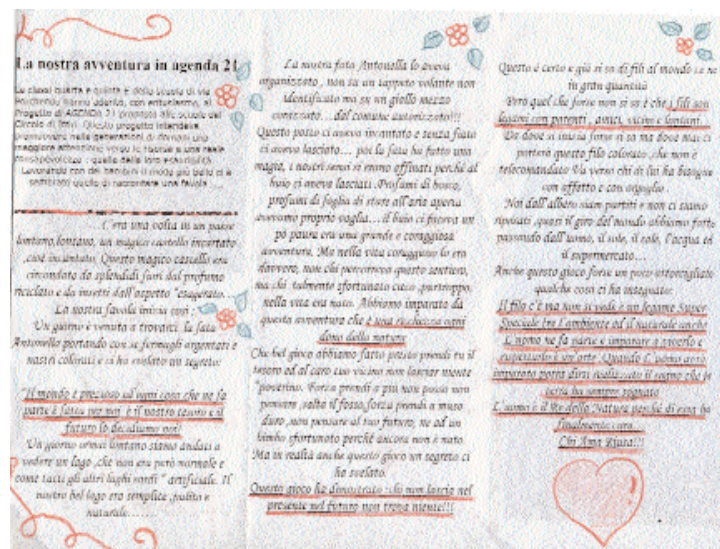 La nostra avventura in agenda 21
Le classi quarta e quinta e della scuola di via
hanno aderito, con entusiasmo, al
Progetto di AGENDA 21 proposto alle scuole del
Circolo di Questo progetto intendeva
promuovere nella generazioni di domani una
maggiore attenzione verso le risorse e una reale
consapevolezza : quella della loro esauribilità.
Lavorando con dei bambini il modo più bello ci è
sembrato quello di raccontare una favola.
C'era una volta in un paese
lontano, lontano, un magico castello incantato
,cioè incantato. Questo magico castello era
circondato da splendidi fiori dal profumo
riciclato e da insetti dall'aspetto "esagerato...
La nostra favola inizia così :
Un giorno è venuta a trovarci la fata
Antonella portando con se fermagli argentati e
nastri colorati e ci ha svelato un segreto:
"Il mondo è prezioso ed ogni cosa che ne fa
parte è fatta per noi è il nostro tesoro e il
futuro lo decidiamo noi!
Un giorno ormai lontano siamo andati a
vedere un lago ,che non era però normale e
come tutti gli altri laghi " artificiale. Il
nostro bel lago era semplice ,pulito e
naturale.......
La nostra fata Antonella lo aveva
organizzato , non su un tappeto volante non
identificato ma su un giallo mezzo
.....dal comune autorizzato!!!
Questo posto ci aveva incantato e senza fiato
ci aveva lasciato.... poi la fata ha fatto una
magia, i nostri sensi si erano affinati perché al
buio ci aveva lasciati .Profumi di bosco,
profumi di foglia di stare all'aria aperta
avevamo proprio voglia....il buio ci faceva un
pò paura era una grande e coraggiosa
avventura. Ma nella vita coraggioso lo era
davvero, non chi percorreva questo sentiero,
ma chi talmente sfortunato cieco ,purtroppo,
nella vita era nato. Abbiamo imparato da
questa avventura che è una ricchezza ogni
dono della natura
Che bel gioco abbiamo fatto presto prendi tu il
tesoro ed al caro tuo vicino non lasciar niente
"poverino. Forza prendi a più non posso non
pensare ,salta il fosso ,forza prendi a muso
duro ,non pensare al tuo futuro, ne ad un
bimbo sfortunato perché ancora non è nato.
Ma in realtà anche questo gioco un segreto ci
ha svelato.
Questo gioco ha dimostrato :chi non lascia nel
presente nel futuro non trova niente!!!
Questo è certo e già si sa di fili al mondo ce ne
in gran quantità
Però quel che forse non si sa è che i fili son
legami con parenti , amici, vicini e lontani.
Da dove si inizia forse si sa ma dove mai ci
porterà questo filo colorato ,che non è
telecomandato Va verso chi di lui ha bisogno
con affetto e con orgoglio .
Noi dall'albero siam partiti e non ci siamo
riposati ,quasi il giro del mondo abbiamo fatto
passando dall'uomo, il sole, il sole, l'acqua ed
il supermercato...
Anche questo gioco forse un poco attorcigliato
qualche cosa ci ha insegnato:
Il filo c'è ma non si vede è un legame Super
Speciale tra l'ambiente ed il naturale anche
L'uomo ne fa parte e imparare a viverlo e
rispettarlo è un'arte. Quando L'uomo avrà
imparato potrà dirsi realizzato il sogno che la
terra ha sempre sognato
L'uomo è il Re della Natura perché di essa ha
finalmente cura...
Chi Ama Riusa!!!